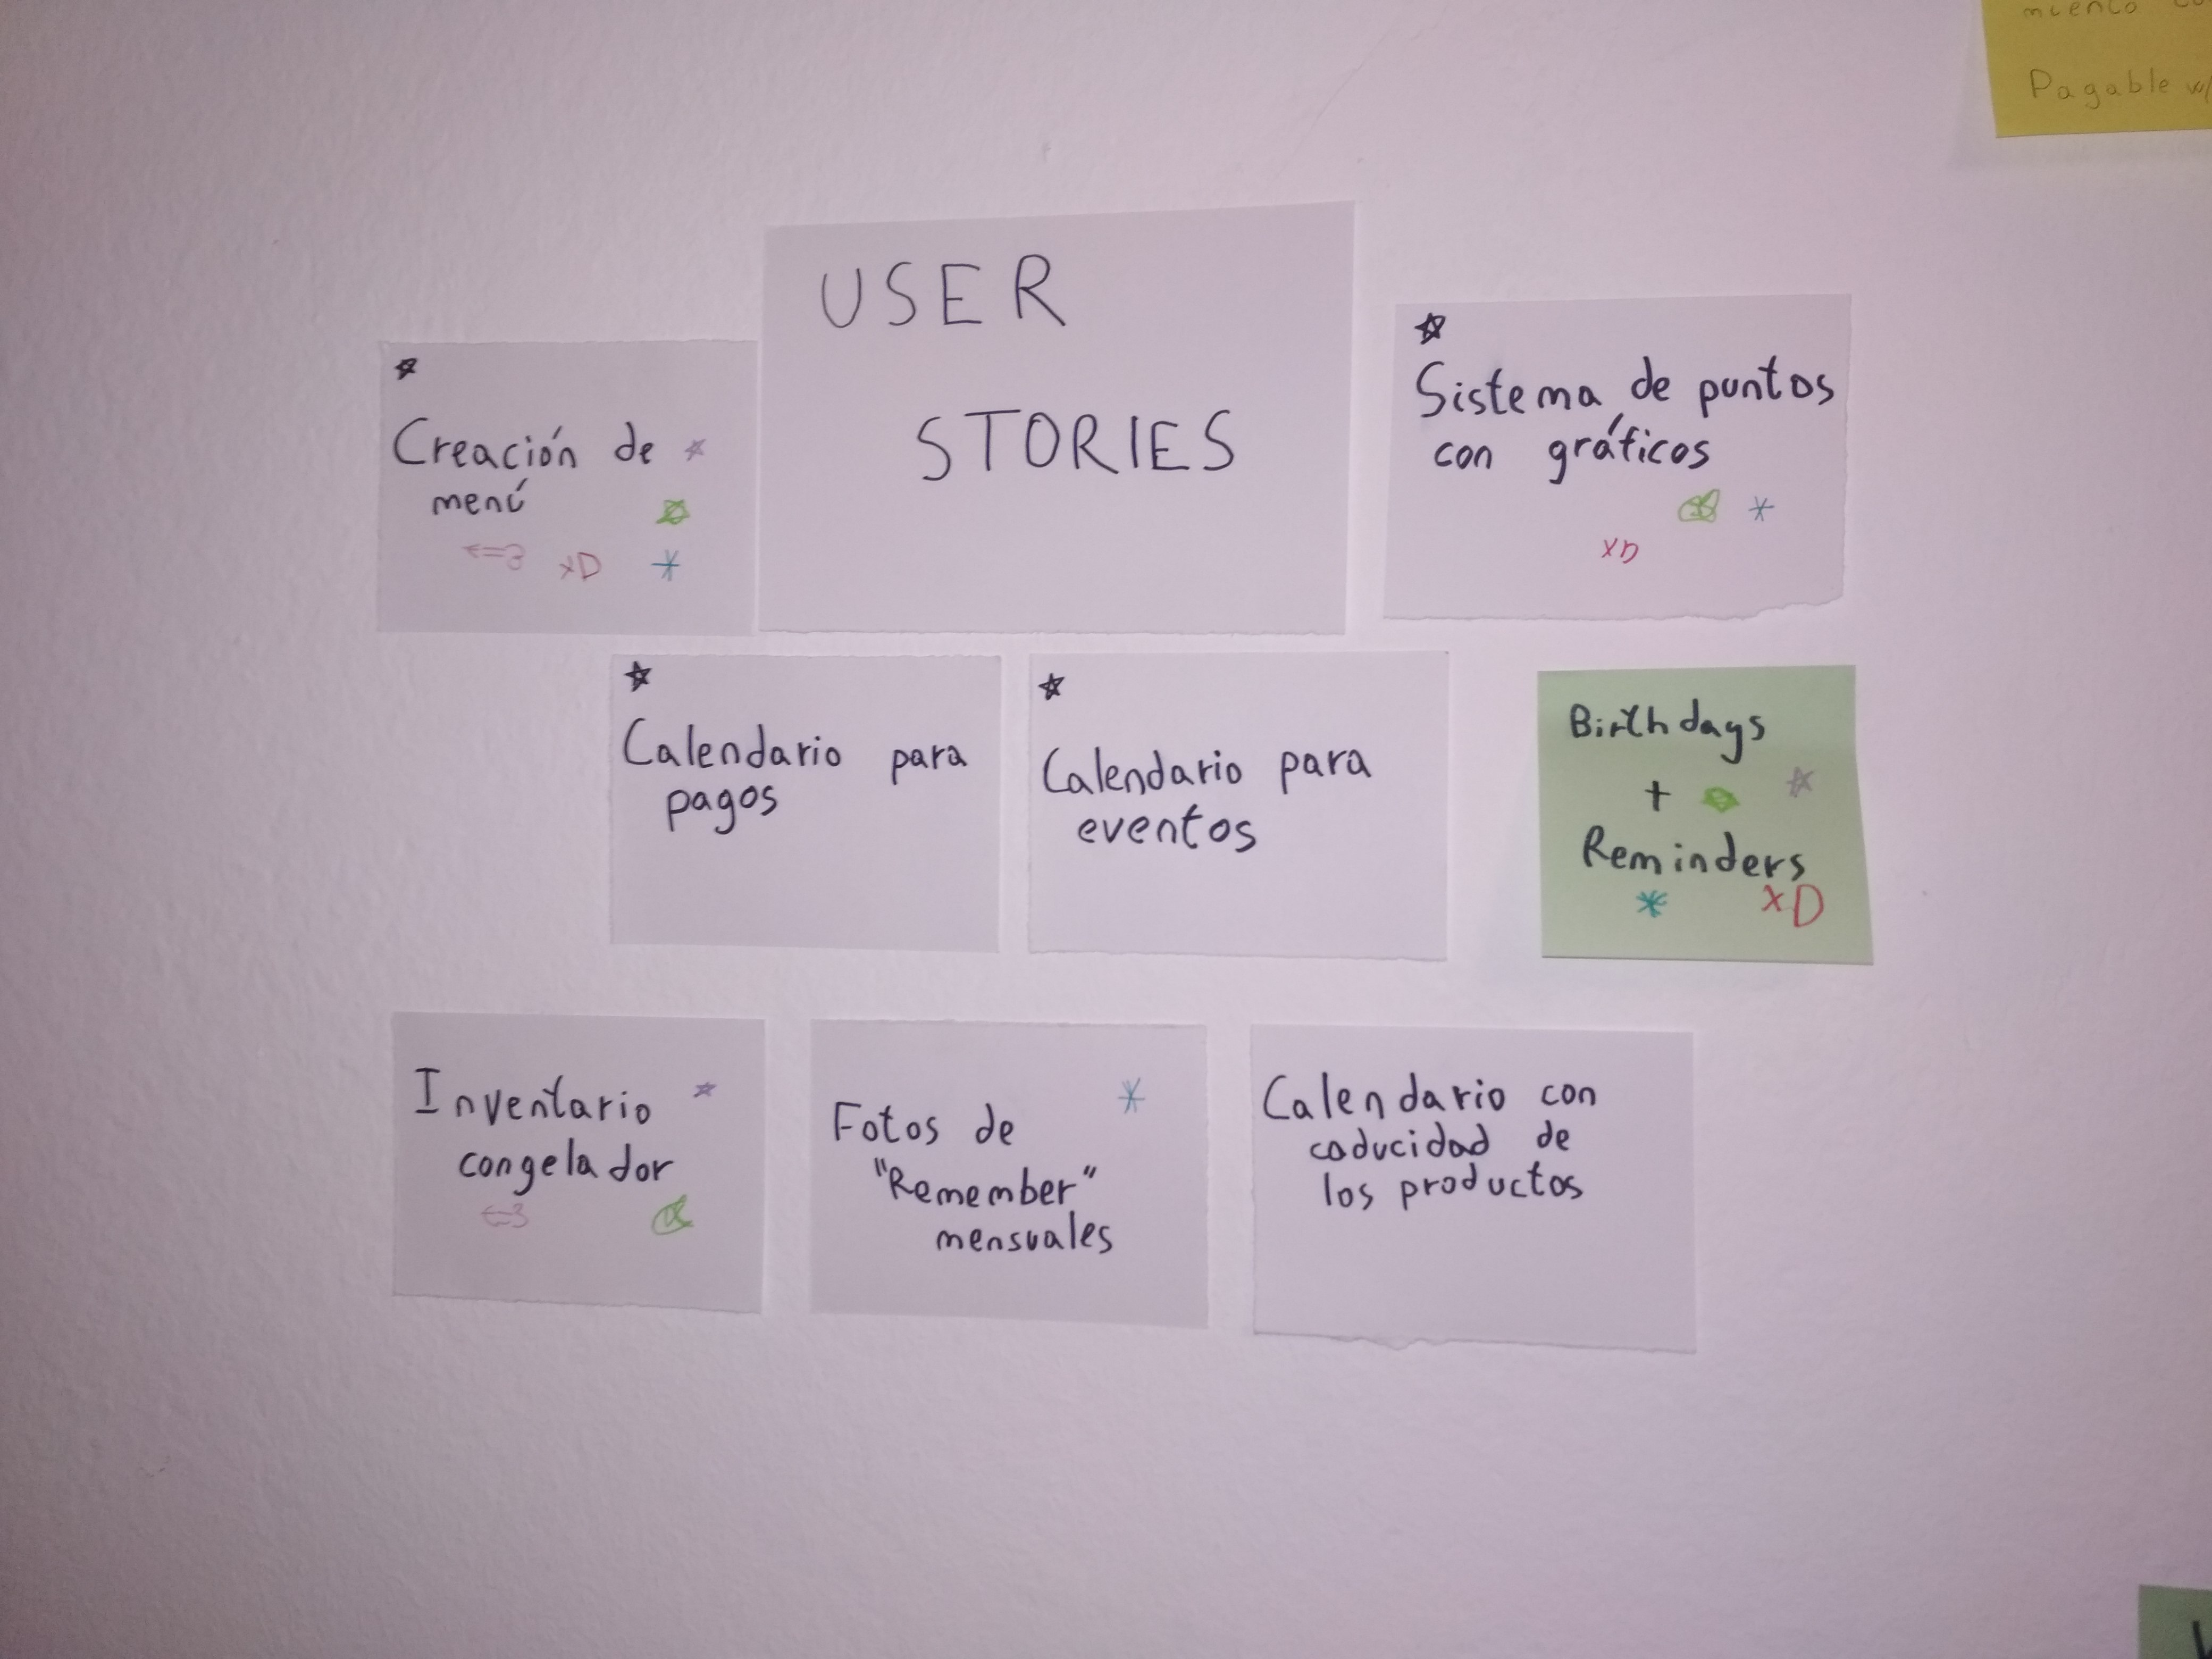 Pagable w/
USER
STORIES
Creación de
menú
<=3 xD
Sistema de puntos
con gráficos
xD
Calendario para
pagos
Calendario para
eventos
Birthdays
+
Reminders
xD
Inventario
congelador
<=3
Fotos de
"Remember"
mensuales
Calendario con
caducidad de
los productos